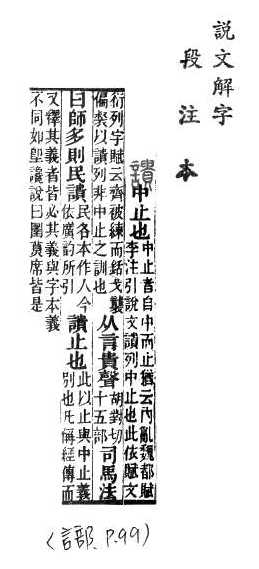 說文解字
段注本
䜋
中止也
中止者自中而止猶云內亂魏都賦
李注引說文䜋列中止也此依賦文
衍列字賦云齊被練而銛戈襲
偏裻以䜋列非中止之訓也
从言貴聲
胡對切
十五部
司馬法
曰師多則民䜋
民各本作人今
依廣韵所引
䜋止也
此以止與中止義
別也凡偁經傳而
又釋其義者皆必其義與字本義
不同如堲讒說曰圛莫席皆是
(言部、P.99)